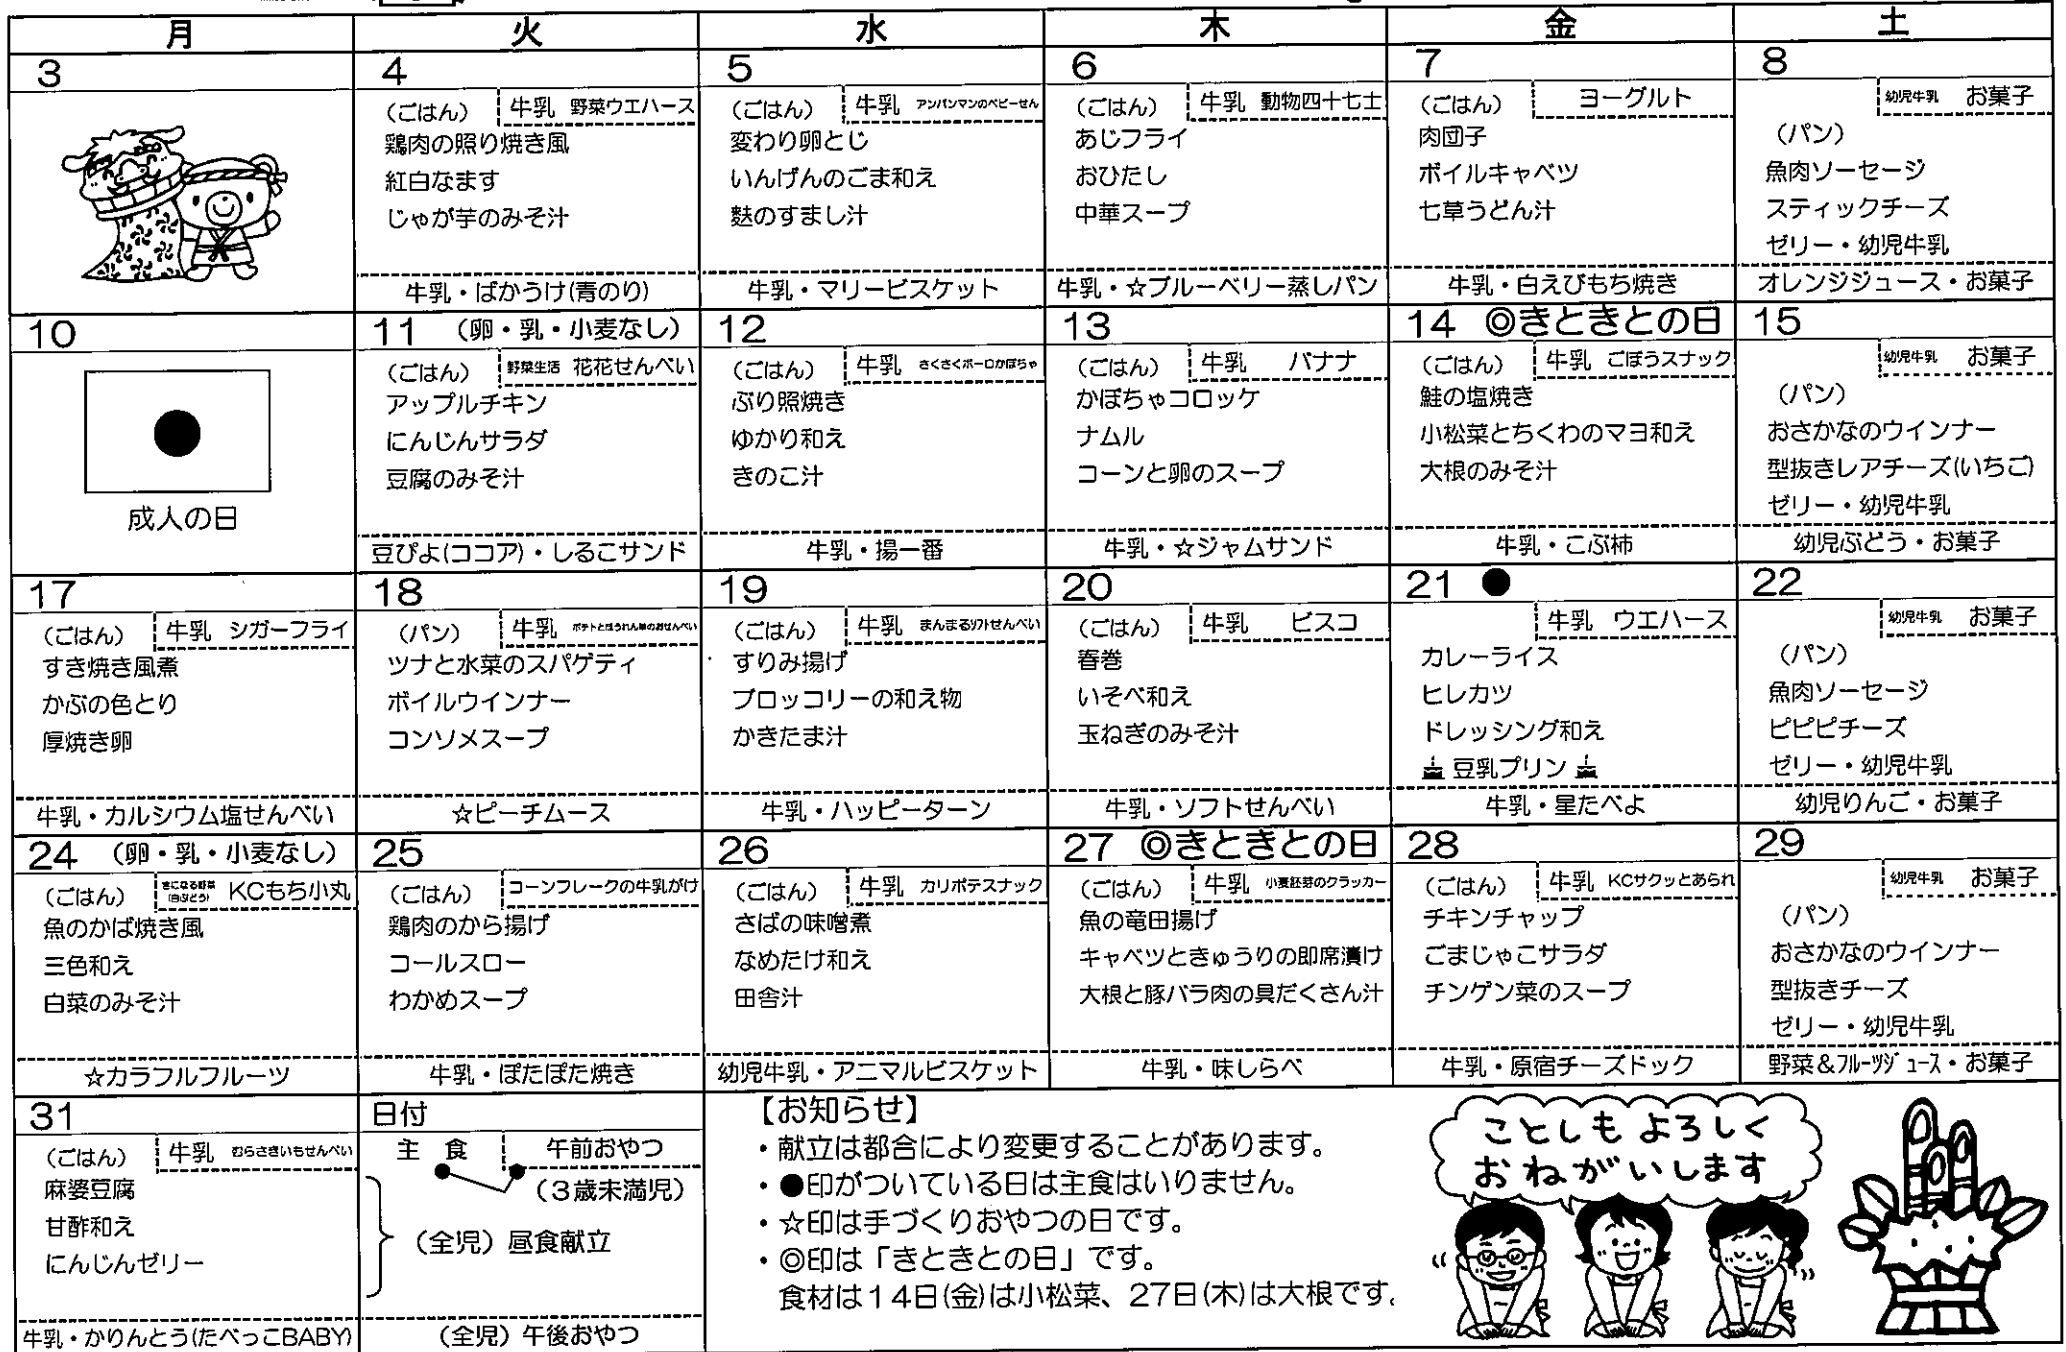 月 火 水 木 金 土
3
4
(ごはん) 牛乳 野菜ウエハース
鶏肉の照り焼き風
紅白なます
じゃが芋のみそ汁
牛乳・ばかうけ(青のり)
5
(ごはん) 牛乳 アンパンマンのベビーせん
変わり卵とじ
いんげんのごま和え
麩のすまし汁
牛乳・マリービスケット
6
(ごはん) 牛乳 動物四十七士
あじフライ
おひたし
中華スープ
牛乳・☆ブルーベリー蒸しパン
7
(ごはん) ヨーグルト
肉団子
ボイルキャベツ
七草うどん汁
牛乳・白えびもち焼き
8
幼児牛乳 お菓子
(パン)
魚肉ソーセージ
スティックチーズ
ゼリー・幼児牛乳
オレンジジュース・お菓子
10
成人の日
11 (卵・乳・小麦なし)
(ごはん) 野菜生活 花花せんべい
アップルチキン
にんじんサラダ
豆腐のみそ汁
豆ぴよ(ココア)・しるこサンド
12
(ごはん) 牛乳 さくさくボーロかぼちゃ
ぶり照焼き
ゆかり和え
きのこ汁
牛乳・揚一番
13
(ごはん) 牛乳 バナナ
かぼちゃコロッケ
ナムル
コーンと卵のスープ
牛乳・☆ジャムサンド
14 ◎きときとの日
(ごはん) 牛乳 ごぼうスナック
鮭の塩焼き
小松菜とちくわのマヨ和え
大根のみそ汁
牛乳・こぶ柿
15
幼児牛乳 お菓子
(パン)
おさかなのウインナー
型抜きレアチーズ(いちご)
ゼリー・幼児牛乳
幼児ぶどう・お菓子
17
(ごはん) 牛乳 シガーフライ
すき焼き風煮
かぶの色とり
厚焼き卵
牛乳・カルシウム塩せんべい
18
(パン) 牛乳 ポテトとほうれん草のおせんべい
ツナと水菜のスパゲティ
ボイルウインナー
コンソメスープ
☆ピーチムース
19
(ごはん) 牛乳 まんまるソフトせんべい
すりみ揚げ
ブロッコリーの和え物
かきたま汁
牛乳・ハッピーターン
20
(ごはん) 牛乳 ビスコ
春巻
いそべ和え
玉ねぎのみそ汁
牛乳・ソフトせんべい
21 ●
牛乳 ウエハース
カレーライス
ヒレカツ
ドレッシング和え
豆乳プリン
牛乳・星たべよ
22
幼児牛乳 お菓子
(パン)
魚肉ソーセージ
ピピピチーズ
ゼリー・幼児牛乳
幼児りんご・お菓子
24 (卵・乳・小麦なし)
(ごはん) きになる野菜(白ぶどう) KCもち小丸
魚のかば焼き風
三色和え
白菜のみそ汁
☆カラフルフルーツ
25
(ごはん) コーンフレークの牛乳がけ
鶏肉のから揚げ
コールスロー
わかめスープ
牛乳・ぽたぽた焼き
26
(ごはん) 牛乳 カリポテスナック
さばの味噌煮
なめたけ和え
田舎汁
幼児牛乳・アニマルビスケット
27 ◎きときとの日
(ごはん) 牛乳 小麦胚芽のクラッカー
魚の竜田揚げ
キャベツときゅうりの即席漬け
大根と豚バラ肉の具だくさん汁
牛乳・味しらべ
28
(ごはん) 牛乳 KCサクッとあられ
チキンチャップ
ごまじゃこサラダ
チンゲン菜のスープ
牛乳・原宿チーズドック
29
幼児牛乳 お菓子
(パン)
おさかなのウインナー
型抜きチーズ
ゼリー・幼児牛乳
野菜&フルーツジュース・お菓子
31
(ごはん) 牛乳 むらさきいもせんべい
麻婆豆腐
甘酢和え
にんじんゼリー
牛乳・かりんとう(たべっこBABY)
日付
主食 午前おやつ
(3歳未満児)
(全児)昼食献立
(全児)午後おやつ
【お知らせ】
・献立は都合により変更することがあります。
・●印がついている日は主食はいりません。
・☆印は手づくりおやつの日です。
・◎印は「きときとの日」です。
食材は14日(金)は小松菜、27日(木)は大根です。
ことしもよろしく
おねがいします